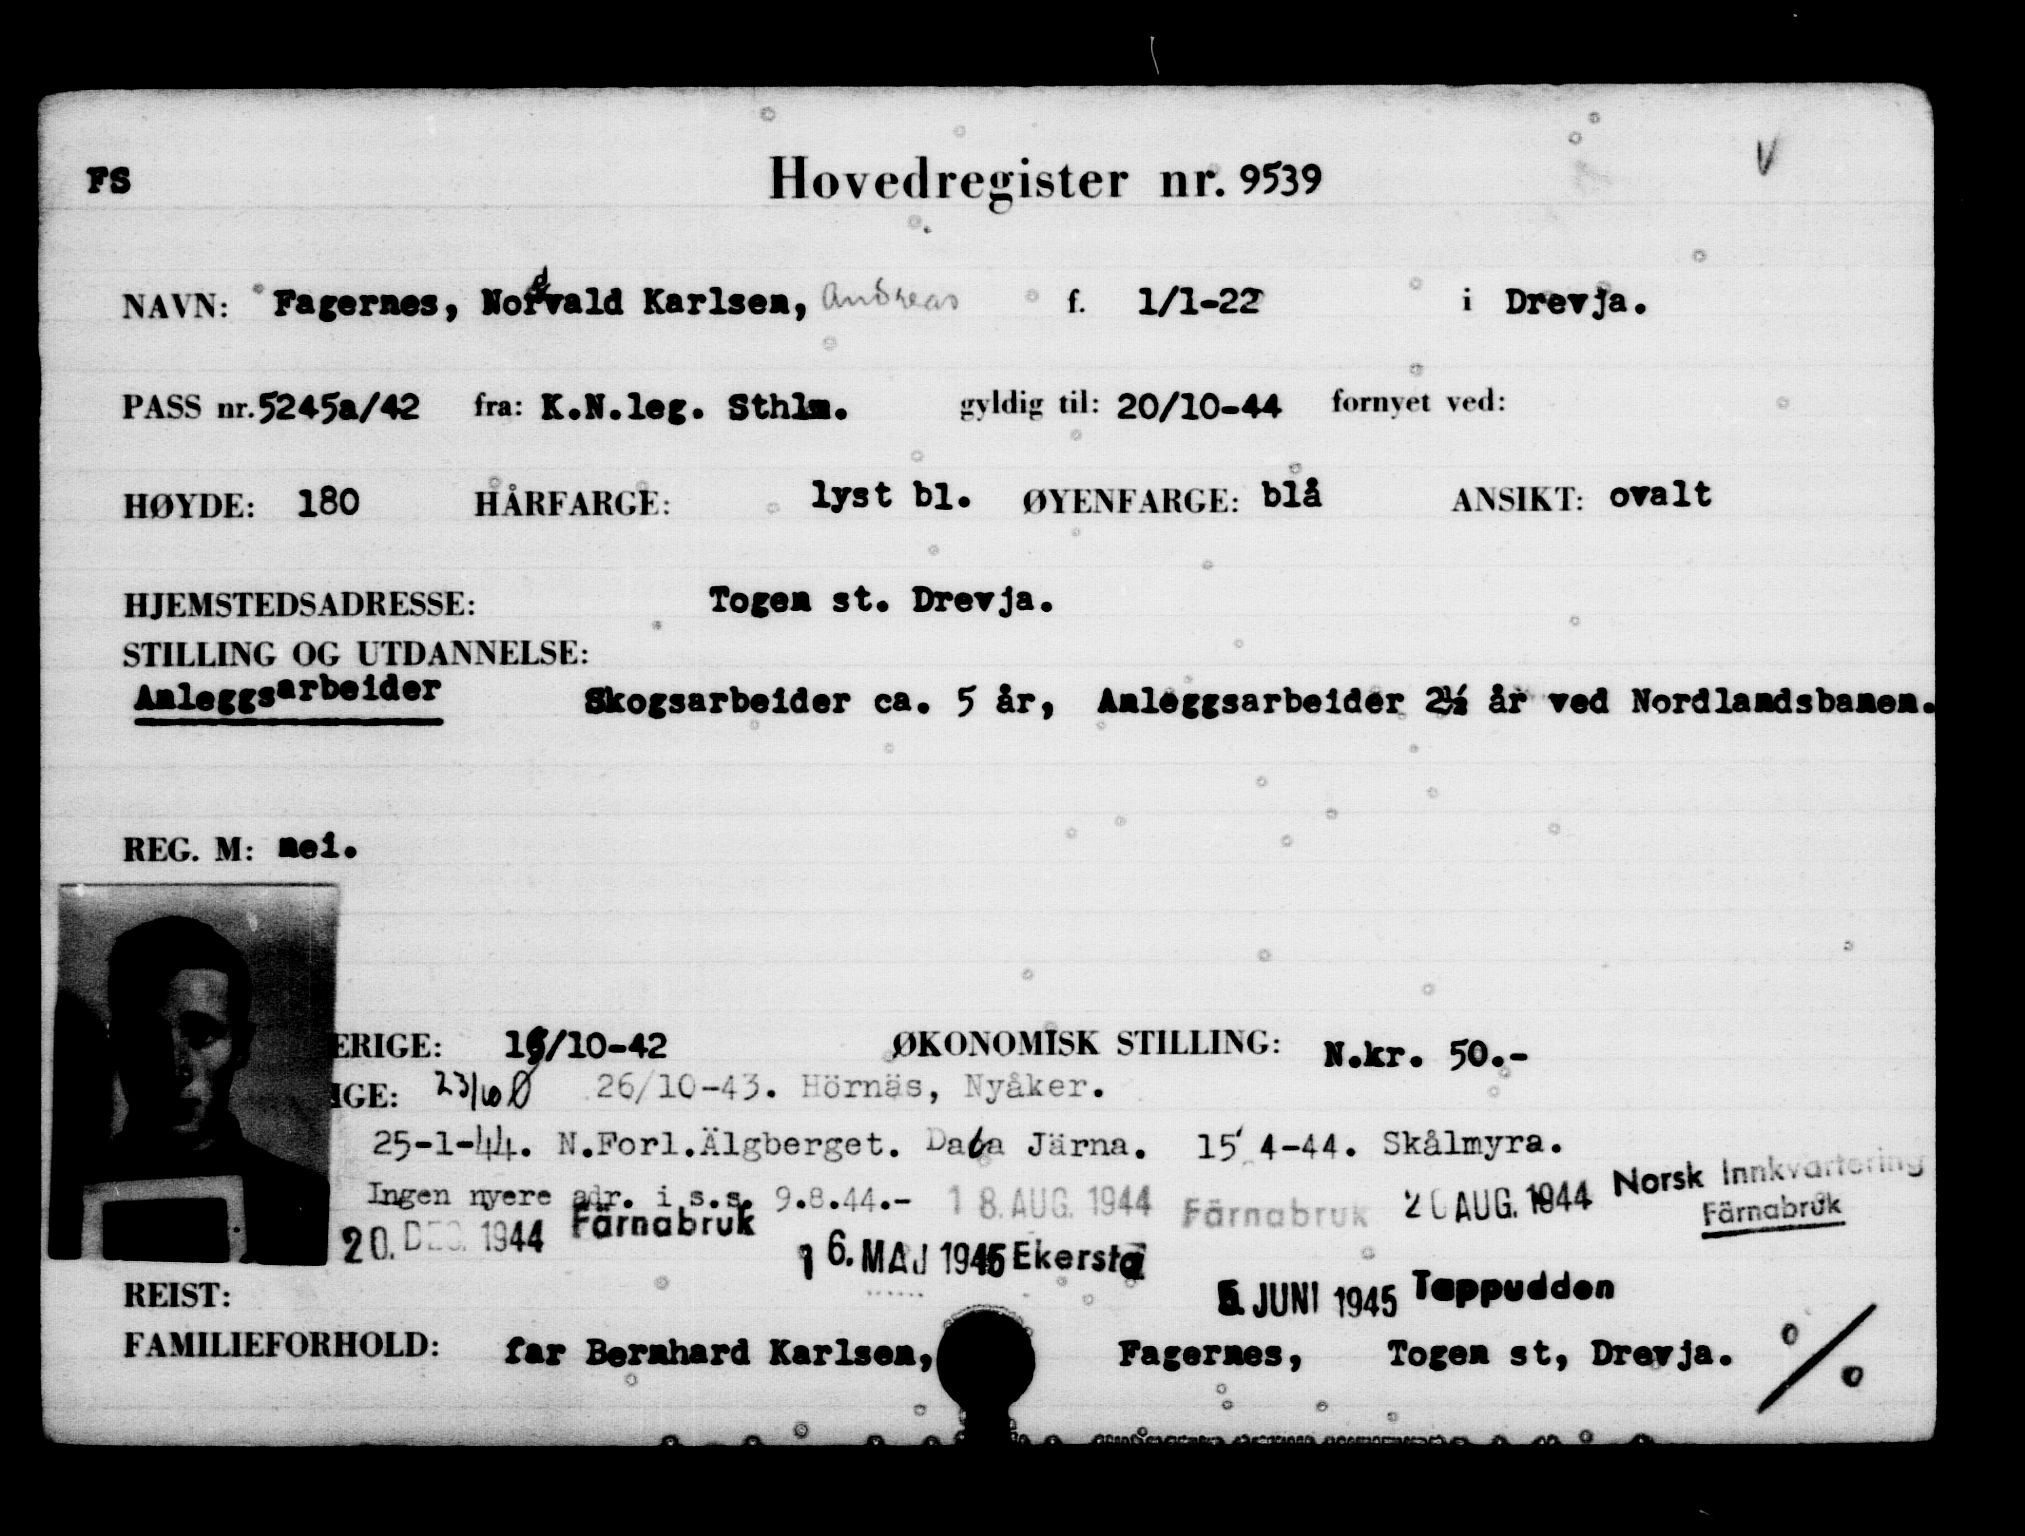 FS
Hovedregister nr. 9539
V
NAVN: Fagernes, Nordvald Karlsen, Andreas f. 1/1-22 i Drevja.
PASS nr. 5245a/42 fra: K.N.leg. Sthlm. gyldig til: 20/10-44 fornyet ved:
HØYDE: 180 HÅRFARGE: lyst bl. ØYENFARGE: blå ANSIKT: ovalt
HJEMSTEDSADRESSE: Togen st. Drevja.
STILLING OG UTDANNELSE:
Anleggsarbeider Skogsarbeider ca. 5 år, Anleggsarbeider 2½ år ved Nordlandsbanen.
REG. M: nei.
ERIGE: /10-42 ØKONOMISK STILLING: N.kr. 50.-
IGE: 26/10-43. Hörnäs, Nyåker.
25-1-44. N.Forl.Älgberget. Dala Järna. 15 4-44. Skålmyra.
Ingen nyere adr. i s.s. 9.8.44.- 18. AUG. 1944 Färnabruk 20 AUG. 1944 Norsk Innkvartering
Färnabruk
20. DEC. 1944 Färnabruk
16. MAJ 1945 Ekersta
5. JUNI 1945 Tappudden
REIST:
FAMILIEFORHOLD: far Bernhard Karlsen, Fagernes, Togen st, Drevja.
o/o